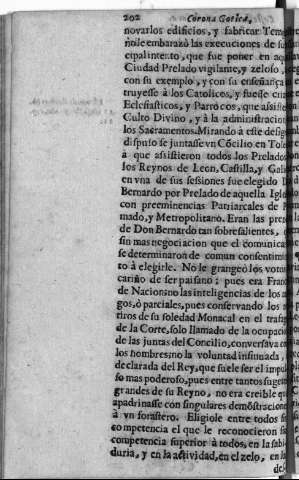 202 Corona Gotica,
novarlos edificios, y fabricar Tem
ñole embarazò las execuciones de su
cipal intento, que fue poner en aq
Ciudad Prelado vigilante, y zeloso,
con su exemplo, y con su enseñança
truyesse à los Catolicos, y fuesse
Eclesiasticos, y Parrocos, que assist
Culto Divino, y à la administracion
los Sacramentos. Mirando à este desig
dispuso se juntasse vn Cõcilio en Tole
à que assistieron todos los Prelado
los Reynos de Leon, Castilla, y Gali
en vna de sus sessiones fue elegido
Bernardo por Prelado de aquella Igle
con preeminencias Patriarcales de
mado, y Metropolitano. Eran las pren
de Don Bernardo tan sobresalientes,
sin mas negociacion que el comunica
se determinaron de comun consentimi
to à elegirle. No le grangeò los voto
cariño de ser paisano: pues era Fran
de Nacion: no las inteligencias de los a
gos, ò parciales, pues conservando los
tiros de su soledad Monacal en el trafa
de la Corte, solo llamado de la ocupacio
de las juntas del Concilio, conversava co
los hombres: no la voluntad insinuada,
declarada del Rey, que suele ser el impu
so mas poderoso, pues entre tantos suget
grandes de su Reyno, no era creible qu
apadrinasse con singulares demõstracione
à vn forastero. Eligiole entre todos
competencia el que le reconocieron
competencia superior à todos, en la sabi
duria, y en la actividad, en el zelo, en la
de